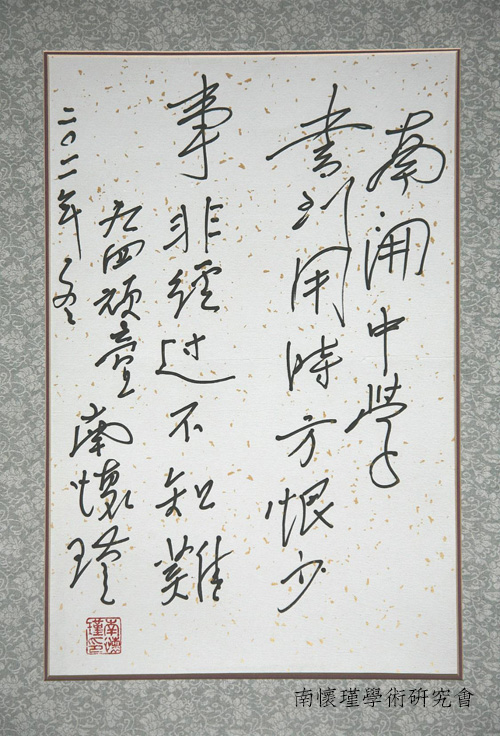 南開中學
書到用時方恨少
事非經过不知難
九四頑童南懷瑾
二〇一一年冬
南懷瑾印
南懷瑾學術研究會